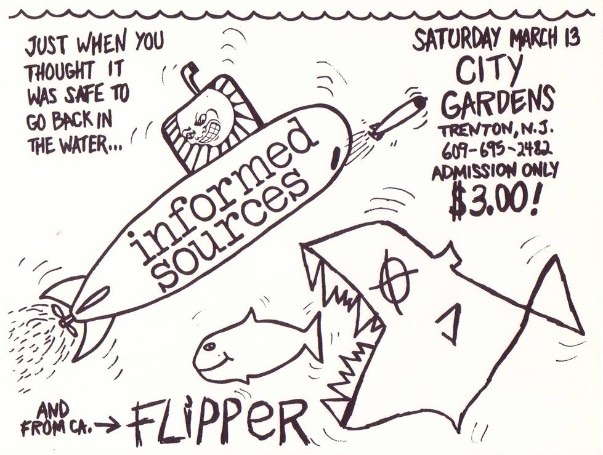 JUST WHEN YOU
THOUGHT IT
WAS SAFE TO
GO BACK IN
THE WATER...
SATURDAY MARCH 13
CITY
GARDENS
TRENTON, N.J.
609-695-2482
ADMISSION ONLY
$3.00!
informed
sources
AND
FROM CA. → FLiPPER